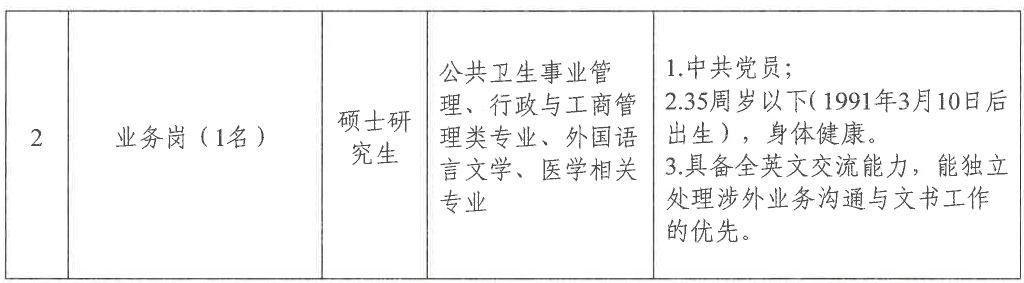 2
业务岗（1名）
硕士研
究生
公共卫生事业管
理、行政与工商管
理类专业、外国语
言文学、医学相关
专业
1.中共党员；
2.35周岁以下（1991年3月10日后
出生），身体健康。
3.具备全英文交流能力，能独立
处理涉外业务沟通与文书工作
的优先。